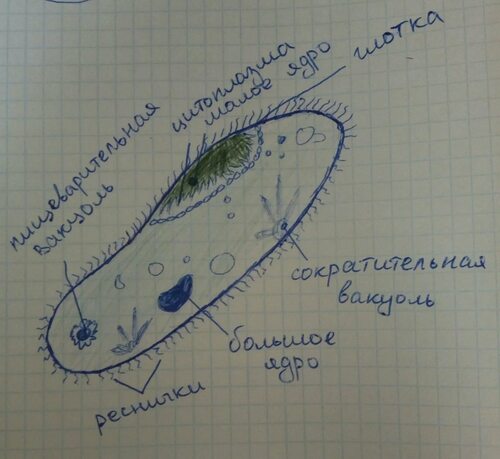 глотка
цитоплазма
малое ядро
пищеварительная
вакуоль
сократительная
вакуоль
большое
ядро
реснички